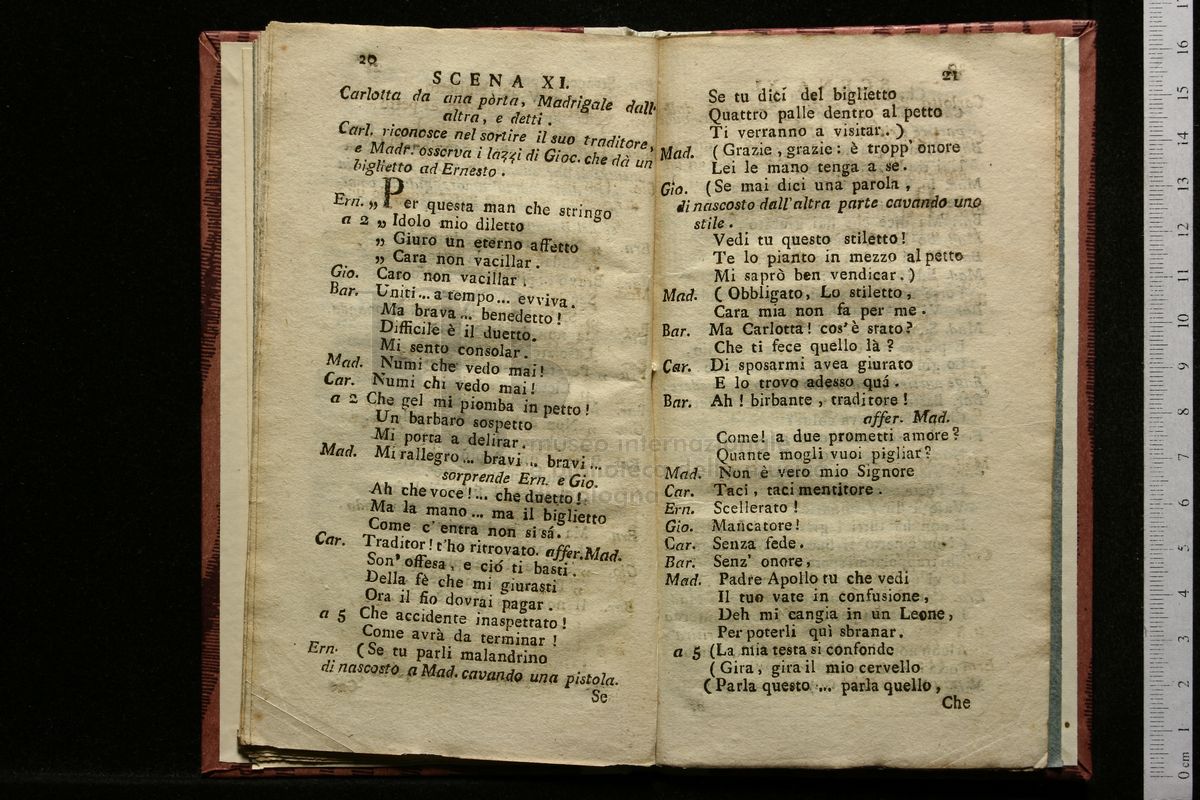 20
SCENA XI.
Carlotta da una pòrta, Madrigale dall'
altra, e detti.
Carl. riconosce nel sortire il suo traditore,
e Madr. osserva i lazzi di Gioc. che dà un
biglietto ad Ernesto.
Ern. „ Per questa man che stringo
a 2 „ Idolo mio diletto
„ Giuro un eterno affetto
„ Cara non vacillar.
Gio. Caro non vacillar.
Bar. Uniti... a tempo... evviva.
Ma brava... benedetto!
Difficile è il duetto.
Mi sento consolar.
Mad. Numi che vedo mai!
Car. Numi chi vedo mai!
a 2 Che gel mi piomba in petto!
Un barbaro sospetto
Mi porta a delirar.
Mad. Mi rallegro... bravi... bravi...
sorprende Ern. e Gio.
Ah che voce!... che duetto!
Ma la mano... ma il biglietto
Come c'entra non si sá.
Car. Traditor! t'ho ritrovato. affer. Mad.
Son' offesa, e ció ti basti.
Della fè che mi giurasti
Ora il fio dovrai pagar.
a 5 Che accidente inaspettato!
Come avrà da terminar!
Ern. (Se tu parli malandrino
di nascosto a Mad. cavando una pistola.
Se
21
Se tu dici del biglietto
Quattro palle dentro al petto
Ti verranno a visitar.)
Mad. (Grazie, grazie: è tropp' onore
Lei le mano tenga a se.
Gio. (Se mai dici una parola,
di nascosto dall'altra parte cavando uno
stile.
Vedi tu questo stiletto!
Te lo pianto in mezzo al petto
Mi saprò ben vendicar.)
Mad. (Obbligato, Lo stiletto,
Cara mia non fa per me.
Bar. Ma Carlotta! cos'è stato?
Che ti fece quello là?
Car. Di sposarmi avea giurato
E lo trovo adesso quá.
Bar. Ah! birbante, traditore!
affer. Mad.
Come! a due prometti amore?
Quante mogli vuoi pigliar?
Mad. Non è vero mio Signore
Car. Taci, taci mentitore.
Ern. Scellerato!
Gio. Mancatore!
Car. Senza fede.
Bar. Senz' onore,
Mad. Padre Apollo tu che vedi
Il tuo vate in confusione,
Deh mi cangia in un Leone,
Per poterli quì sbranar.
a 5 (La mia testa si confonde
(Gira, gira il mio cervello
(Parla questo... parla quello,
Che